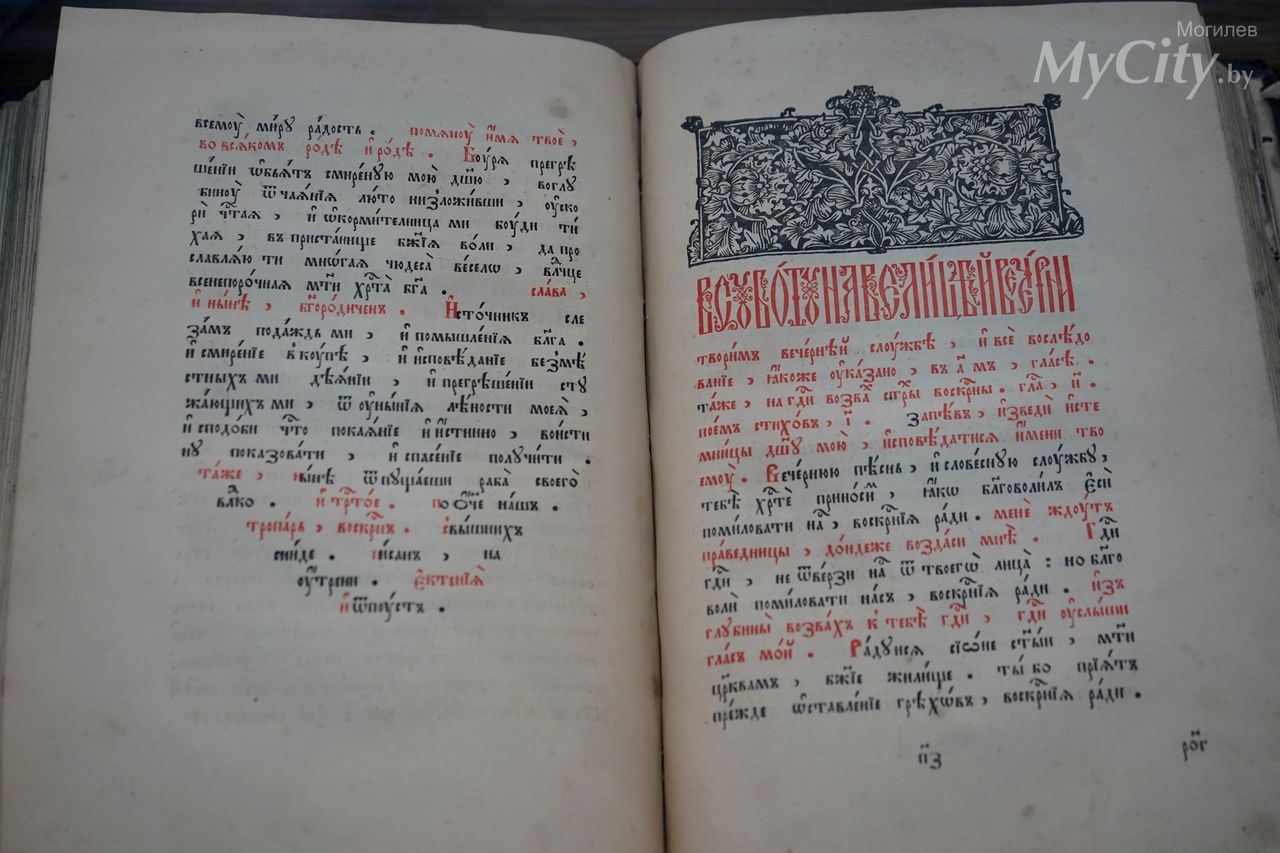 всемоу̀ ми́рꙋ ра́дость . помѧноу̀ и҆́мѧ твоѐ ,
во всѧ́комъ ро́дѣ и҆ ро́дѣ . Боу́рѧ прегрѣ
ше́нїи ѡ҆бьѧ́тъ смире́ную мою̀ дш҃ю , воглꙋ
биноу̀ ѿчаѧ́нїѧ лю́то низложи́вши , оу҆ско
рѝ чт҃аѧ , и҆ ѡ҆корми́телница ми боу́ди ти́
хаѧ , въ приста́нище бж҃їѧ во́ли , да про
славлѧ́ю ти мнѡ́гаѧ чюдеса̀ ве́селѡ , влч҃це
всенепоро́чнаѧ мт҃и хрт҃а бг҃а . сла́ва ,
и҆ ны́нѣ , бг҃оро́диченъ . И҆сто́чникъ сле
за́мъ пода́ждь ми , и҆ помышле́нїѧ бл҃га .
и҆ смире́нїе вкоу́пѣ , и҆ и҆сповѣ́данїе безмѣ́
стныхъ ми дѣѧ́нїи , и҆ прегрѣше́нїи стꙋ
жа́ющихъ ми , ѿ оу҆ны́нїѧ лѣ́ности моеѧ̀ ,
и҆ сподо́би чт҃о покаѧ́нїе и҆ и҆́стинно , вои́сти
нꙋ показова́ти , и҆ спасе́нїе полꙋчи́ти .
та́же , ны́нѣ ѿпꙋща́еши раба̀ своего̀
влⷣко . и҆ трⷭ҇то́е . по ѻ҆́ч҃е нашъ .
тропа́рь , воскрⷭ҇нъ . свы́шнихъ
сни́де . пи́санъ , на
оу҆́трени . Є҆ктенїѧ̀
и҆ ѿпоу́стъ .
Могилев
MyCity.by
ВСꙊБО́ТꙊ НАВЕЛИ́ЦѢЙ ВЕЧЕ́РНИ
твори́мъ вече́рнѣй слоу́жбѣ , и҆ всѐ вослѣ́до
ванїе , ꙗ҆́коже оу҆ка́зано , въ а҃ мъ , гла́сѣ .
та́же , на гдⷭ҇и возва́х сти҃ры воскрⷭ҇ны . гла҃ , и҃ .
пое́мъ стихо́въ , і҃ . Запе́въ , и҆зведѝ и҆с те
мни́цы дш҃ꙋ мою̀ , и҆сповѣ́датисѧ и҆́мени тво
емоу̀ . Вече́рнюю пѣ́снь , и҆ слове́сную слоу́жбꙋ ,
тебѣ̀ хрⷭ҇тѐ прино́симъ , ꙗ҆́кѡ бл҃говоли́лъ є҆сѝ
поми́ловати насъ , воскрⷭ҇нїѧ ра́ди . менѐ ждоу́тъ
пра́ведницы , до́ндеже возда́си мнѣ̀ . Гдⷭ҇и
гдⷭ҇и , не ѿве́рзи насъ ѿ твоегѡ̀ лица̀ : но бл҃го
волѝ поми́ловати на́съ , воскрⷭ҇нїѧ ра́ди . и҆з
глꙋбины̀ возва́хъ к тебѣ̀ гдⷭ҇и , гдⷭ҇и оу҆слы́ши
гла́съ мо́й . Ра́дꙋисѧ сїѡ́не ст҃ы́и , мт҃и
цр҃квамъ , бж҃їе жили́ще . ты́ бо прїѧ́тъ
пре́жде ѡ҆ставле́нїе грѣхѡ́въ , воскрⷭ҇нїѧ ра́ди .
п҃з
ро҃г